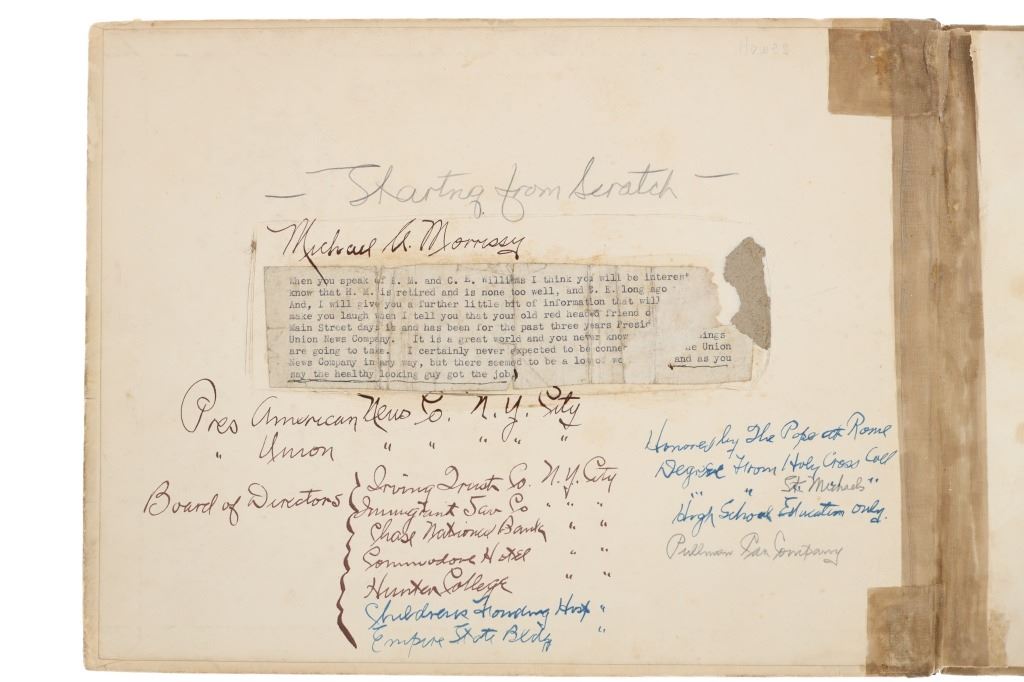 — Starting from Scratch —
Michael A. Morrissy
When you speak of H. M. and C. E. Williams I think you will be interest
know that H. M. is retired and is none too well, and C. E. long ago
And, I will give you a further little bit of information that will
make you laugh when I tell you that your old red headed friend o
Main Street days is and has been for the past three years Presid
Union News Company. It is a great world and you never know ings
are going to take. I certainly never expected to be connec he Union
News Company in any way, but there seemed to be a lot of wo and as you
say the healthy looking guy got the job.
Pres American News Co. N. Y. City
" Union " " " " "
Board of Directors
Irving Trust Co. N. Y. City
Immigrant Sav Co " " "
Chase National Bank " "
Commodore Hotel " "
Hunter College " "
Childrens Founding Hosp "
Empire State Bldg "
Honored by The Pope at Rome
Degree From Holy Cross Coll
" " St. Michaels "
High School Education only.
Pullman Company